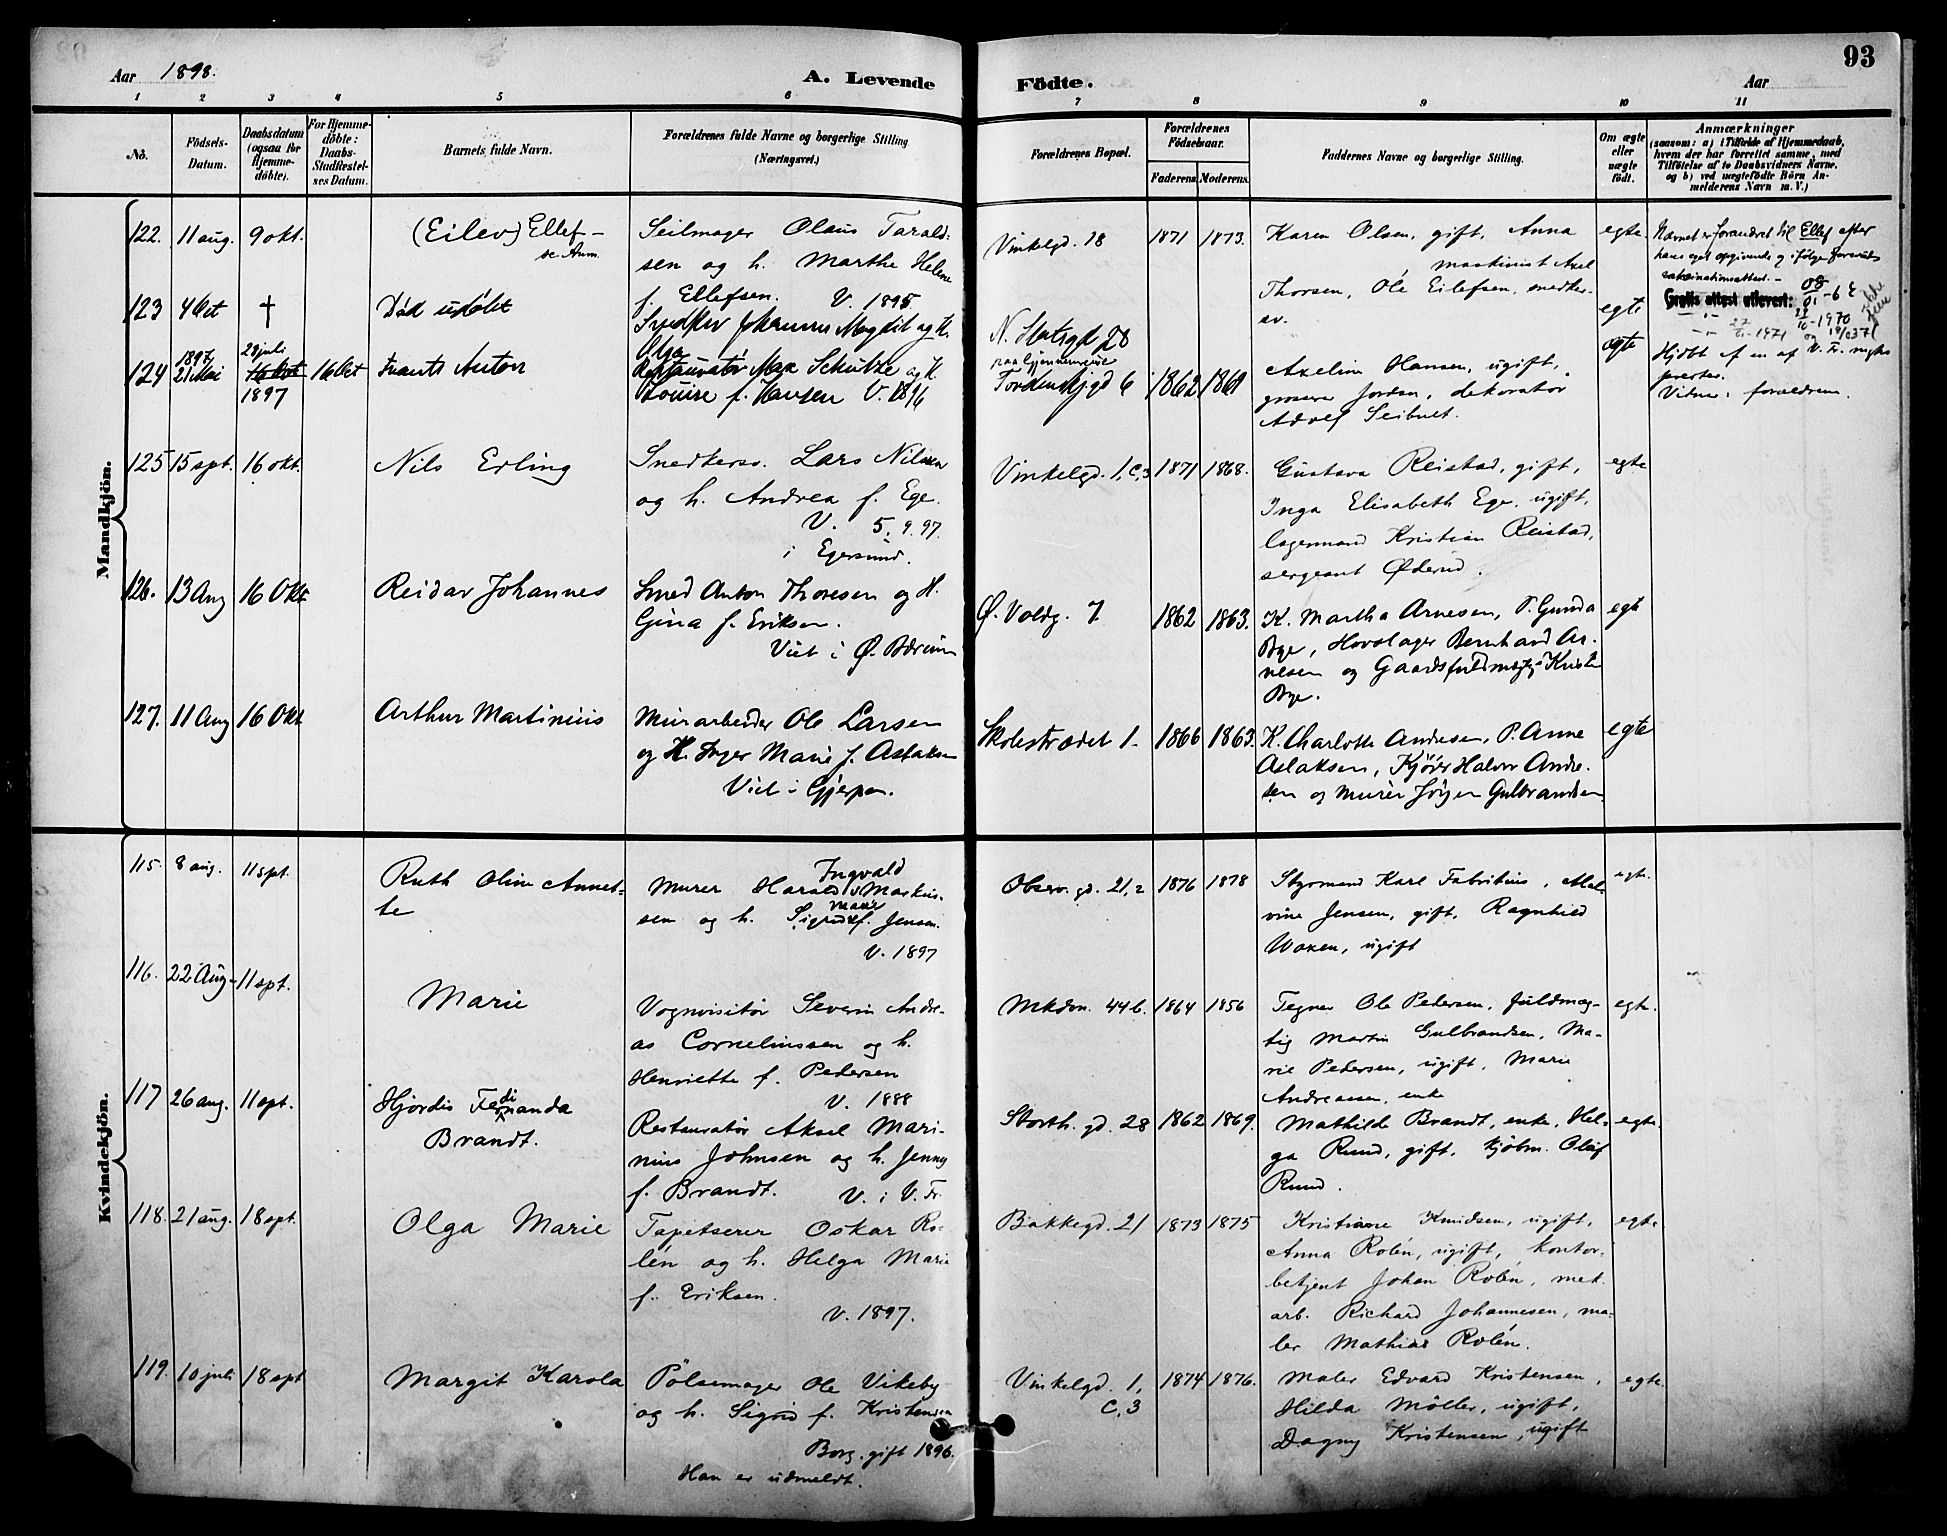 93
Aar 1898.
A. Levende Födte.
Aar
1 2 3 4 5 6 7 8 9 10 11
No.
Födsels-Datum.
Daabsdatum (ogsaa for Hjemme-döbte).
For Hjemme-döbte: Daabs-Stadfæstel-ses Datum.
Barnets fulde Navn.
Forældrenes fulde Navne og borgerlige Stilling (Næringsvei.)
Forældrenes Bopæl.
Forældrenes Födselsaar.
Faderens. Moderens.
Faddernes Navne og borgerlige Stilling.
Om ægte eller uægte födt.
Anmærkninger
(saasom: a) i Tilfælde af Hjemmedaab, hvem der har forrettet samme, med Tilföielse af to Daabsvidners Navne, og b) ved uægtefödte Börn An-melderens Navn m. V.)
Mandkjön.
122. 11 aug. 9 okt.
(Eilev) Ellef –
se Anm.
Seilmager Olaus Tarald-
sen og h. Marthe Helene
f. Ellefsen. V. 1895
Vinkelgd. 18
1871 1873.
Karen Olsen, gift, Anna
maskinist Axel
Thorsen, Ole Eilefsen, snedker-
sv.
egte.
Navnet er forandret til Ellef efter
hans eget opgivende
Gratis attest utlevert:
123 4 Oct †
Död udöbt
Snedker Johannes
N. Slotsgd 28
egte
124 1897 21 Mai
28 juli
16 Oct
1897
16 Oct
Frants Anton
Restauratör Max Schultze og h.
Louise f. Hansen V. 1896
Tordenskjgd 6
1862 1861
Axeline Hansen, ugift,
grosserer Jordan, dekoratör
Adolf Seibnet.
egte
Hjdbt af en af V. Fr. menighs
prester.
Vidne: forældrene.
125 15 spt. 16 okt.
Nils Erling
Snedkersv. Lars Nilssen
og h. Andrea f. Ege.
V. 5.9.97.
i Egersund.
Vinkelgd. 1, C, 3
1871 1868.
Gustava Reistad, gift,
Inga Elisabeth Ege, ugift,
lagermand Kristian Reistad,
sergeant Øderud.
egte
126. 13 Aug 16 Okt
Reidar Johannes
Smed Anton Thoresen og H.
Gina f. Eriksen.
Viet i Ø. Bærum
Ø. Voldg. 7.
1862 1863.
K. Martha Arnesen, P. Gunda
Bye, Hovslager Bernhard Ar-
nesen og Gaardsfuldmægtig Kristen
Bye.
egte
127. 11 Aug 16 Okt
Arthur Martinius
Murarbeider Ole Larsen
og H. Inger Marie f. Aslaksen
Viet i Gjerpen.
Skolestrædet 1.
1866 1863.
K. Charlotte Andresen, P. Anne
Aslaksen, Kjörer Halvor Andre-
sen og Murer Jörgen Gulbrandsen.
egte
Kvindekjön.
115. 8 aug. 11 spt.
Ruth Oline Annet-
te
Ingvald
Murer Harald Markus-
Marie
sen og h. Sigrid f. Jensen.
V. 1897
Observ. gd. 21, 2
1876 1878
Styrmand Karl Fabritius, Mal-
vine Jensen, gift, Ragnhild
Woxen, ugift
egte.
116. 22 Aug. 11 spt.
Marie
Vognvisitör Severin Andre-
as Corneliussen og h.
Henriette f. Pedersen
V. 1888
Mkdsn. 44 b.
1864 1856
Tegner Ole Pedersen, fuldmæg-
tig Martin Gulbrandsen, Ma-
rie Pedersen, ugift, Marie
Andreassen, enke
egte.
117 26 aug. 11 spt.
di
Hjördis Fernanda
Brandt.
Restauratör Aksel Mari-
nius Johnsen og h. Jenny
f. Brandt. V. i V. Fr.
Storth. gd. 28
1862 1869.
Mathilde Brandt, enke, Hel-
ga Ruud, gift, kjöbm. Olaf
Ruud.
egte.
118. 21 aug. 18 spt.
Olga Marie
Tapetserer Oskar Ro-
lén og h. Helga Marie
f. Eriksen.
V. 1897.
Bakkegd. 21
1873 1875
Kristiane Knudsen, ugift,
Anna Rolén, ugift, kontor-
betjent Johan Rolén, mek.
arb. Richard Johannesen, ma-
ler Mathias Rolén.
egte
119. 10 juli 18 spt
Margit Karola
Pölsemager Ole Vikeby
og h. Sigrid f. Kristensen
Borg. gift 1896.
Han er udmeldt.
Vinkelgd. 1,
C, 3
1874 1876.
Maler Edvard Kristensen,
Hilda Möller, ugift,
Dagny Kristensen, ugift
egte.